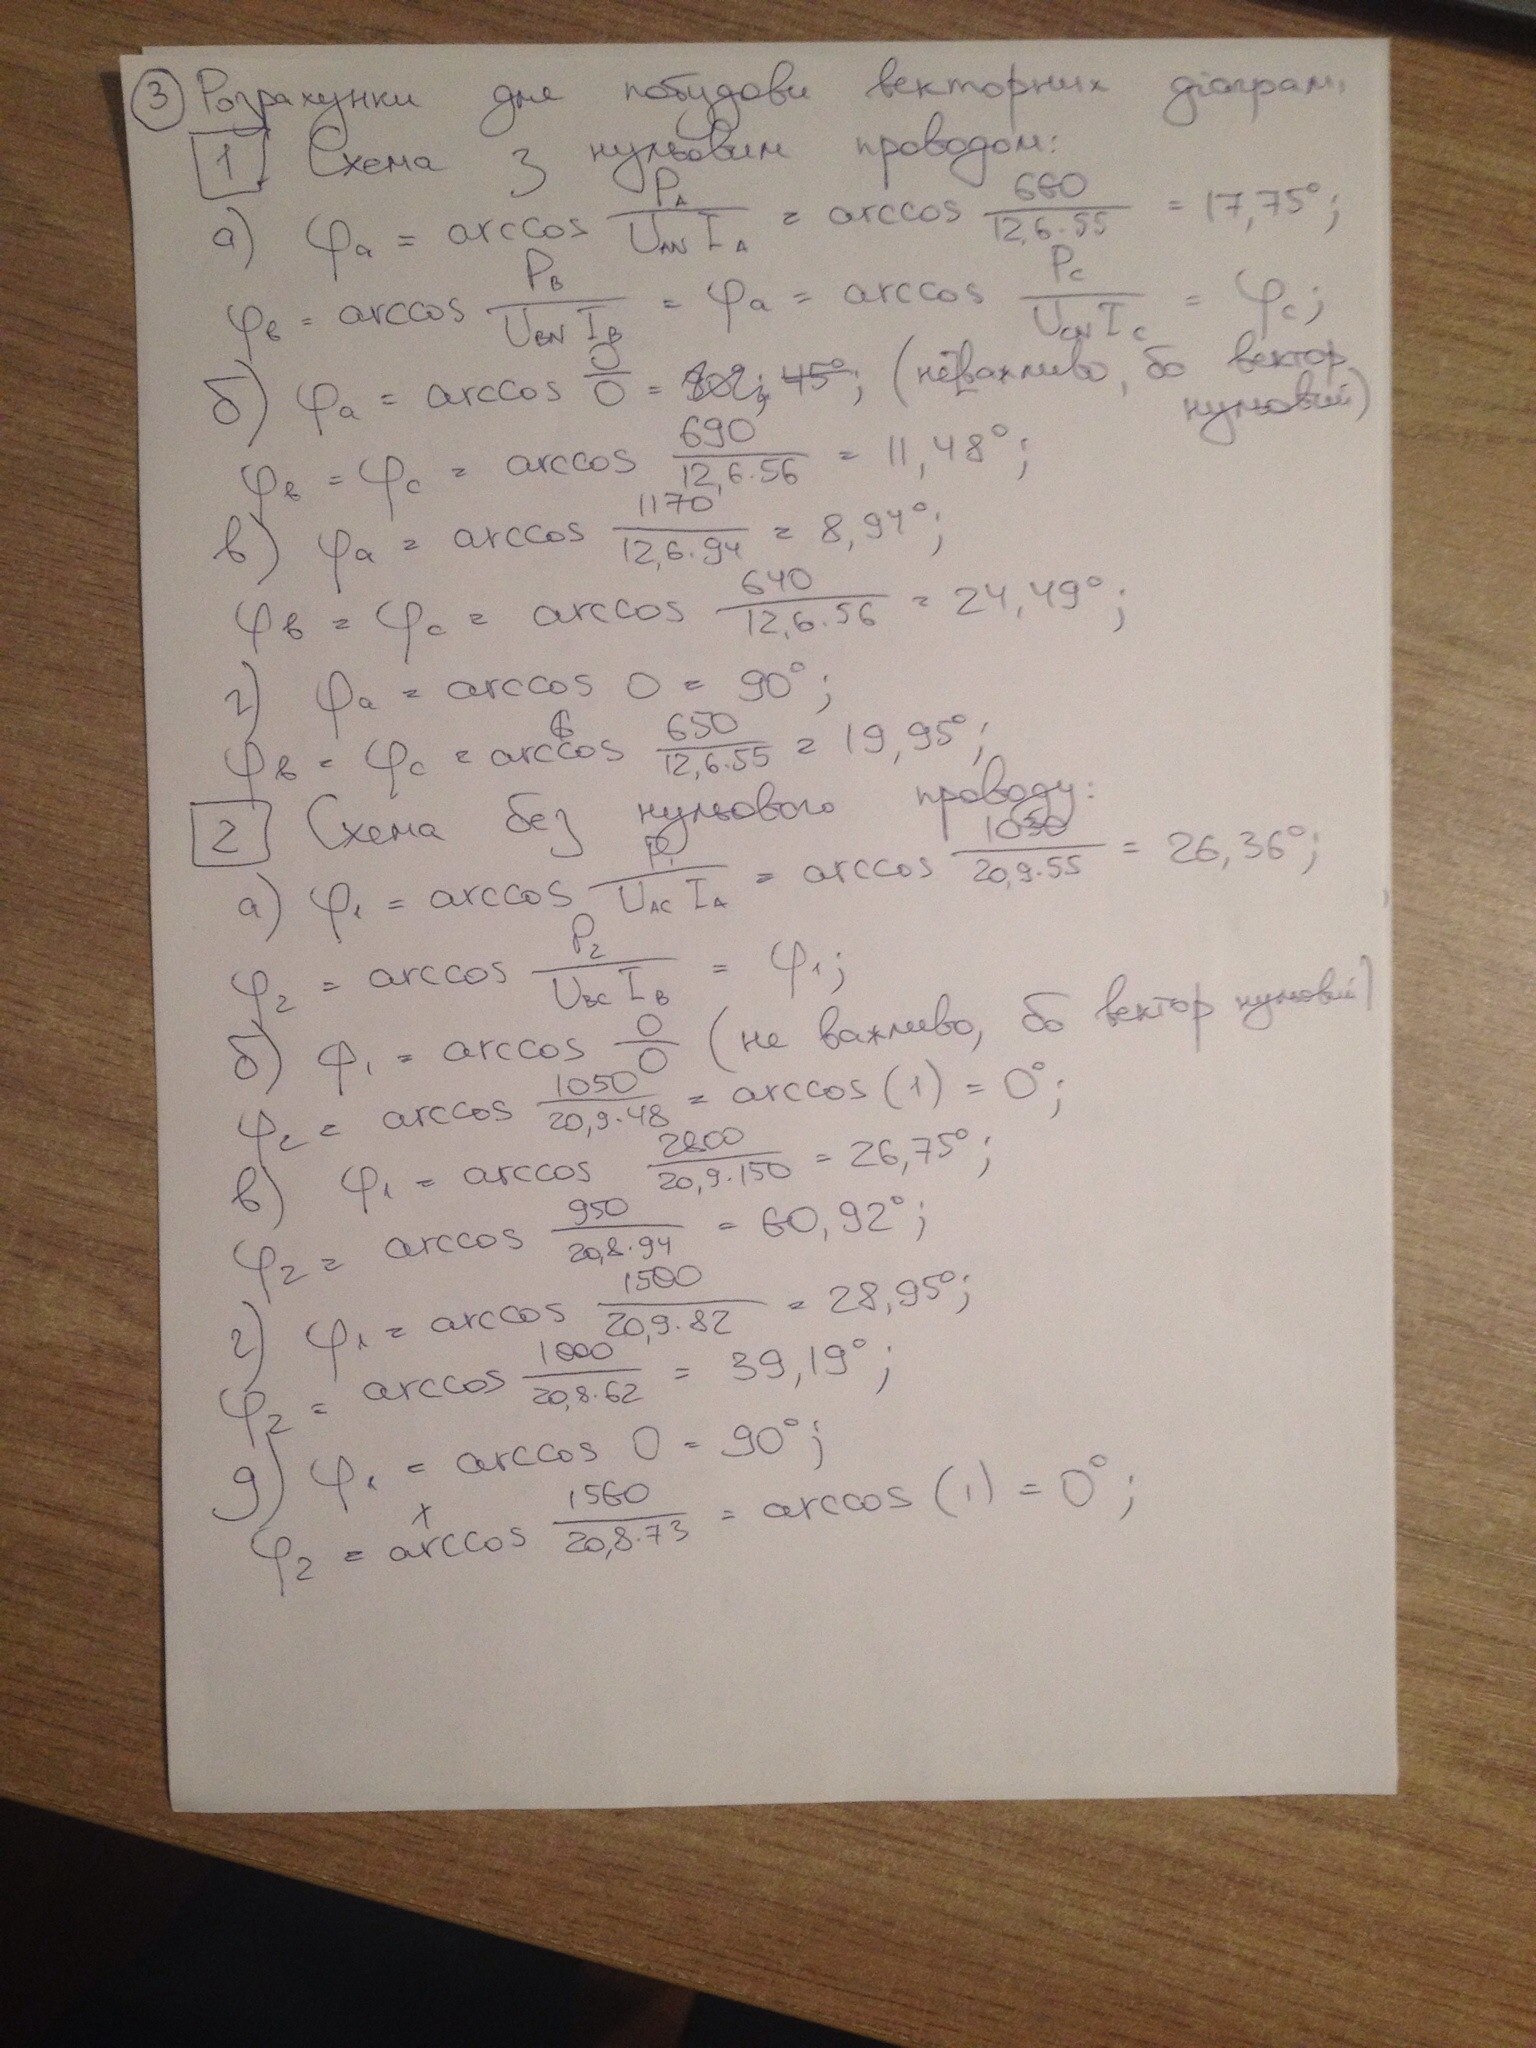 ③ Розрахунки для побудови векторних діаграм.
1 Схема з нульовим проводом:
а) φa = arccos P_A / (U_AN I_A) = arccos 660 / (12,6·55) = 17,75°;
φв = arccos P_B / (U_BN I_B) = φa = arccos P_C / (U_CN I_C) = φc;
б) φa = arccos 0/0 = 45°; (неважливо, бо вектор
нульовий)
φв = φc = arccos 690 / (12,6·56) = 11,48°;
в) φa = arccos 1170 / (12,6·94) = 8,94°;
φв = φc = arccos 640 / (12,6·56) = 24,49°;
г) φa = arccos 0 = 90°;
φв = φc = arccos 650 / (12,6·55) = 19,95°;
2 Схема без нульового проводу:
а) φ1 = arccos P1 / (U_AC I_A) = arccos 1030 / (20,9·55) = 26,36°;
φ2 = arccos P2 / (U_BC I_B) = φ1;
б) φ1 = arccos 0/0 (не важливо, бо вектор нульовий)
φ2 = arccos 1050 / (20,9·48) = arccos (1) = 0°;
в) φ1 = arccos 2800 / (20,9·150) = 26,75°;
φ2 = arccos 950 / (20,8·94) = 60,92°;
г) φ1 = arccos 1500 / (20,9·82) = 28,95°;
φ2 = arccos 1000 / (20,8·62) = 39,19°;
д) φ1 = arccos 0 = 90°;
φ2 = arccos 1560 / (20,8·73) = arccos (1) = 0°;